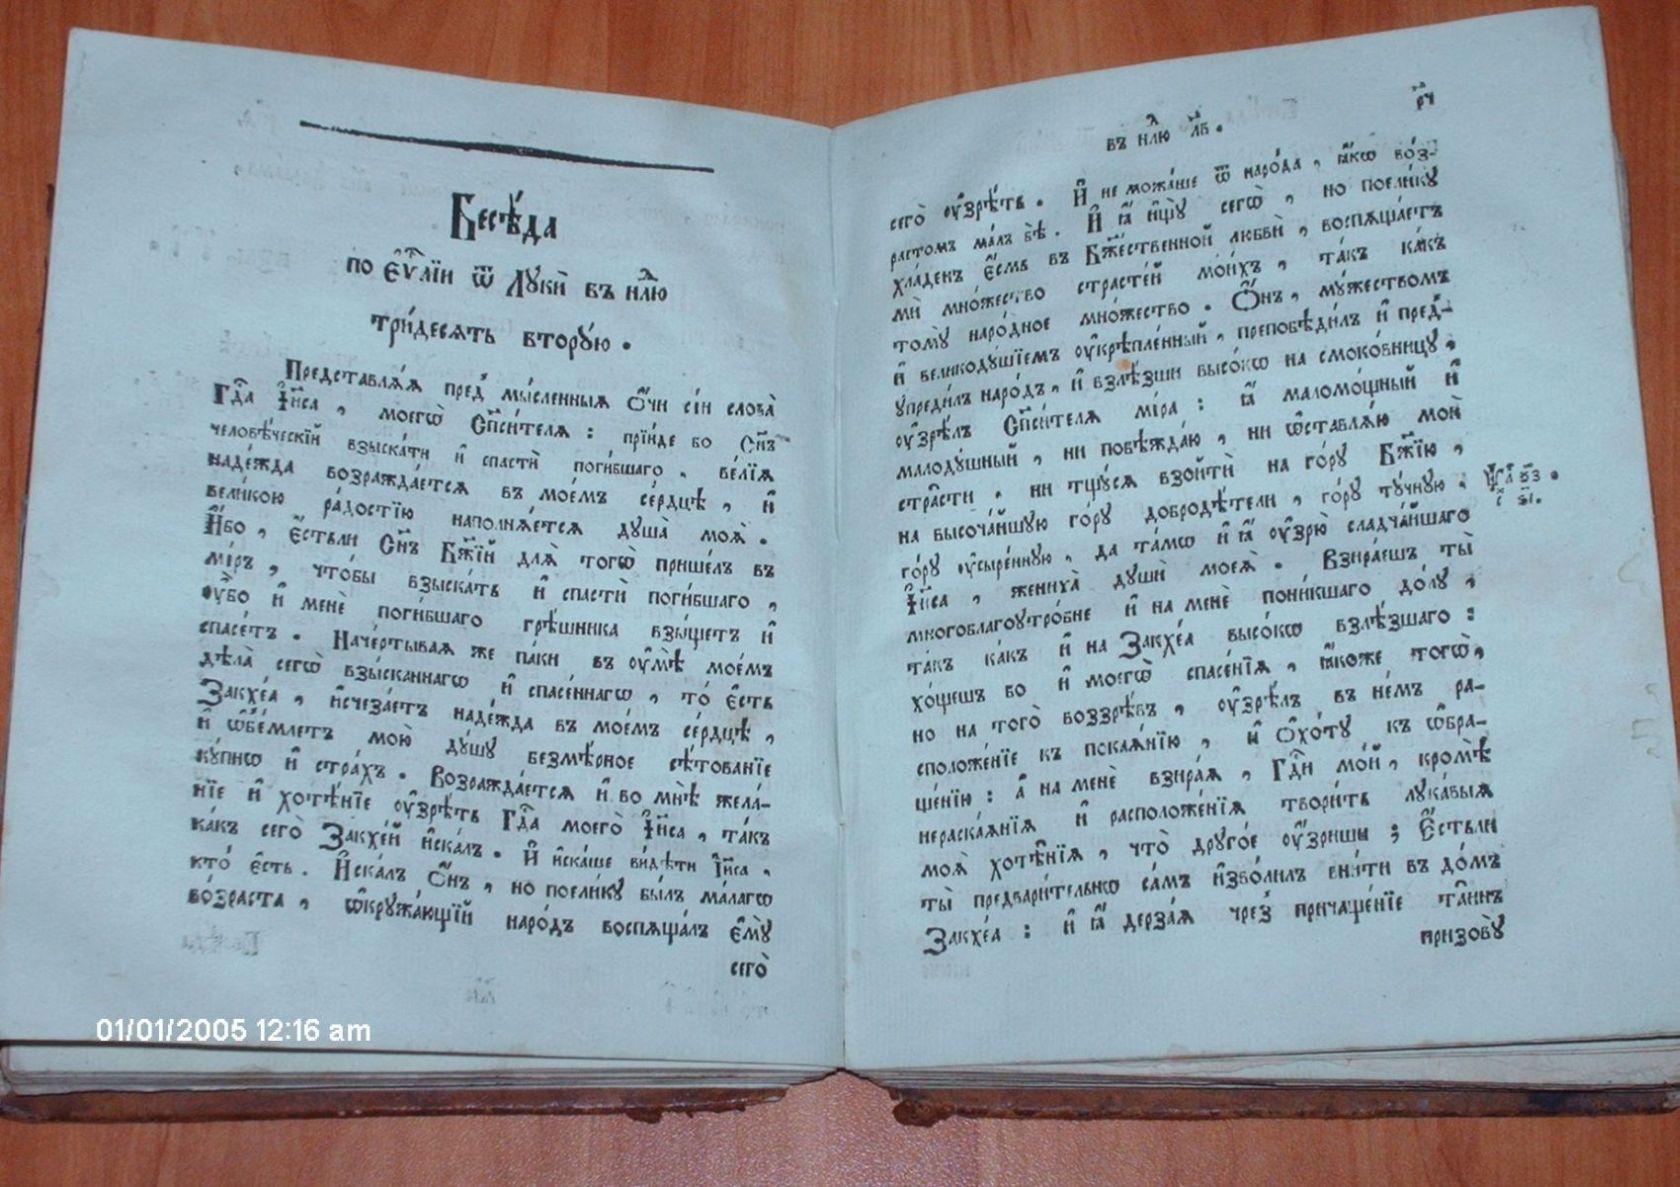 Бесѣ́да
по Є҆ѵⷢ҇лїи ѿ Лꙋкѝ въ нлⷧ҇ю
три́десять вторꙋ́ю.
Представлѧ́ѧ пред̾ мы́сленныѧ Ѻ҆́чи сїи̑ слова̀
Гдⷭ҇а І҆и҃са, моегѡ̀ Сп҃си́телѧ: прїи́де бо Сн҃ъ
человѣ́ческїй взыска́ти и҆ спастѝ поги́бшаго. ве́лїѧ
наде́жда возражда́етсѧ въ мое́мъ се́рдцѣ, и҆
вели́кою ра́достїю наполнѧ́етсѧ дꙋша̀ моѧ̀.
И҆́бо, Є҆́стьли Сн҃ъ Бж҃їй для̀ тогѡ̀ прише́лъ въ
мі́ръ, что́бы взыска́ть и҆ спастѝ поги́бшаго,
оу҆̀бо и҆ менѐ поги́бшаго грѣ́шника взы́щетъ и҆
спасе́тъ. Наче́ртывая же па́ки въ оу҆мѣ̀ мое́мъ
дѣла̀ сегѡ̀ взы́сканнагѡ и҆ спасе́ннагѡ, то́ є҆сть
Закхе́а, и҆счеза́етъ наде́жда въ мое́мъ се́рдцѣ,
и҆ ѡ҆б̾е́млетъ мою̀ дꙋ́шꙋ безмѣ́рное сѣ́тованїе
кꙋ́пнѡ и҆ стра́хъ. Возражда́етсѧ и҆ во мнѣ̀ жела́-
нїе и҆ хотѣ́нїе оу҆зрѣ́ть Гдⷭ҇а моего̀ І҆и҃са, та́къ
ка́къ сего̀ Закхе́й и҆ска́лъ. И҆ и҆ска́ше ви́дѣти І҆и҃са,
кто́ є҆сть. И҆ска́лъ Ѻ҆́нъ, но поели́кꙋ бы́лъ ма́лагѡ
во́зраста, ѡ҆крꙋжа́ющїй наро́дъ воспѧща́лъ є҆мꙋ̀
сего̀
въ нлⷧ҇ю л҃в.
рч
сего̀ оу҆зрѣ́ть. И҆ не можа́ше ѿ наро́да, ꙗ҆́кѡ во́з-
растомъ ма́лъ бѣ̀. И҆ ꙗ҆̀ и҆щꙋ̀ сегѡ̀, но поели́кꙋ
хла́денъ є҆́смь въ Бж҃е́ственной любвѝ, воспѧща́етъ
мѝ мно́жество страсте́й мои́хъ, та́къ ка́къ
томꙋ̀ наро́дное мно́жество. Ѻ҆́нъ, мꙋ́жествомъ
и҆ великодꙋ́шїемъ оу҆крѣпле́нный, препобѣди́лъ и҆ пред̾-
ꙋпреди́лъ наро́дъ, и҆ взлѣ́зши высо́кѡ на смоко́вницꙋ,
оу҆зрѣ́лъ Сп҃си́телѧ мі́ра: ꙗ҆̀ маломо́щный и҆
малодꙋ́шный, ни побѣжда́ю, ни ѡ҆ставлѧ́ю моѝ
стра̑сти, ни тщꙋ́сѧ взойтѝ на го́рꙋ Бж҃їю,
на высоча́йшꙋю го́рꙋ добродѣ́тели, го́рꙋ тꙋ́чнꙋю,
Ѱал. ѯз.
с҃ ѕ҃і.
го́рꙋ оу҆сыре́ннꙋю, да та́мѡ и҆ ꙗ҆̀ оу҆зрю̀ сладча́йшаго
І҆и҃са, жениха̀ дꙋшѝ моеѧ̀. Взира́ешъ ты̀
многоблагоꙋтро́бне и҆ на менѐ пони́кшаго до́лꙋ,
та́къ ка́къ и҆ на Закхе́а высо́кѡ взлѣ́зшаго:
хо́щешъ бо и҆ моегѡ̀ спасе́нїѧ, ꙗ҆́коже тогѡ̀,
но на того̀ воззрѣ́въ, оу҆зрѣ́лъ въ не́мъ ра-
сположе́нїе къ покаѧ́нїю, и҆ Ѻ҆хо́тꙋ къ ѡ҆бра-
ще́нїю: а҆ на менѐ взира́ѧ, Гдⷭ҇и мо́й, кро́мѣ
нераска́ѧнїѧ и҆ расположе́нїѧ твори́ть лꙋка́выѧ
моѧ̀ хотѣ̑нїѧ, что̀ дрꙋго́е оу҆́зриши; Є҆́стьли
ты̀ предвари́тельнѡ са́мъ и҆зво́лилъ вни́ти въ до́мъ
Закхе́а: и҆ ꙗ҆̀ дерза́ѧ чрез̾ причаще́нїе та́инъ
призовꙋ̀
01/01/2005 12:16 am